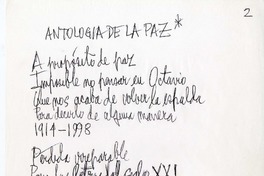 2
ANTOLOGIA DE LA PAZ*
A propósito de paz
Imposible no pensar en Octavio
Que nos acaba de volver la espalda
Para decirlo de alguna manera
1914–1998
Pérdida irreparable
Para las letras del siglo XXI